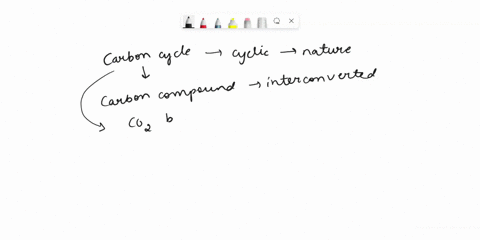 Carbon cycle → cyclic → nature
Carbon compound → interconverted
CO2 b